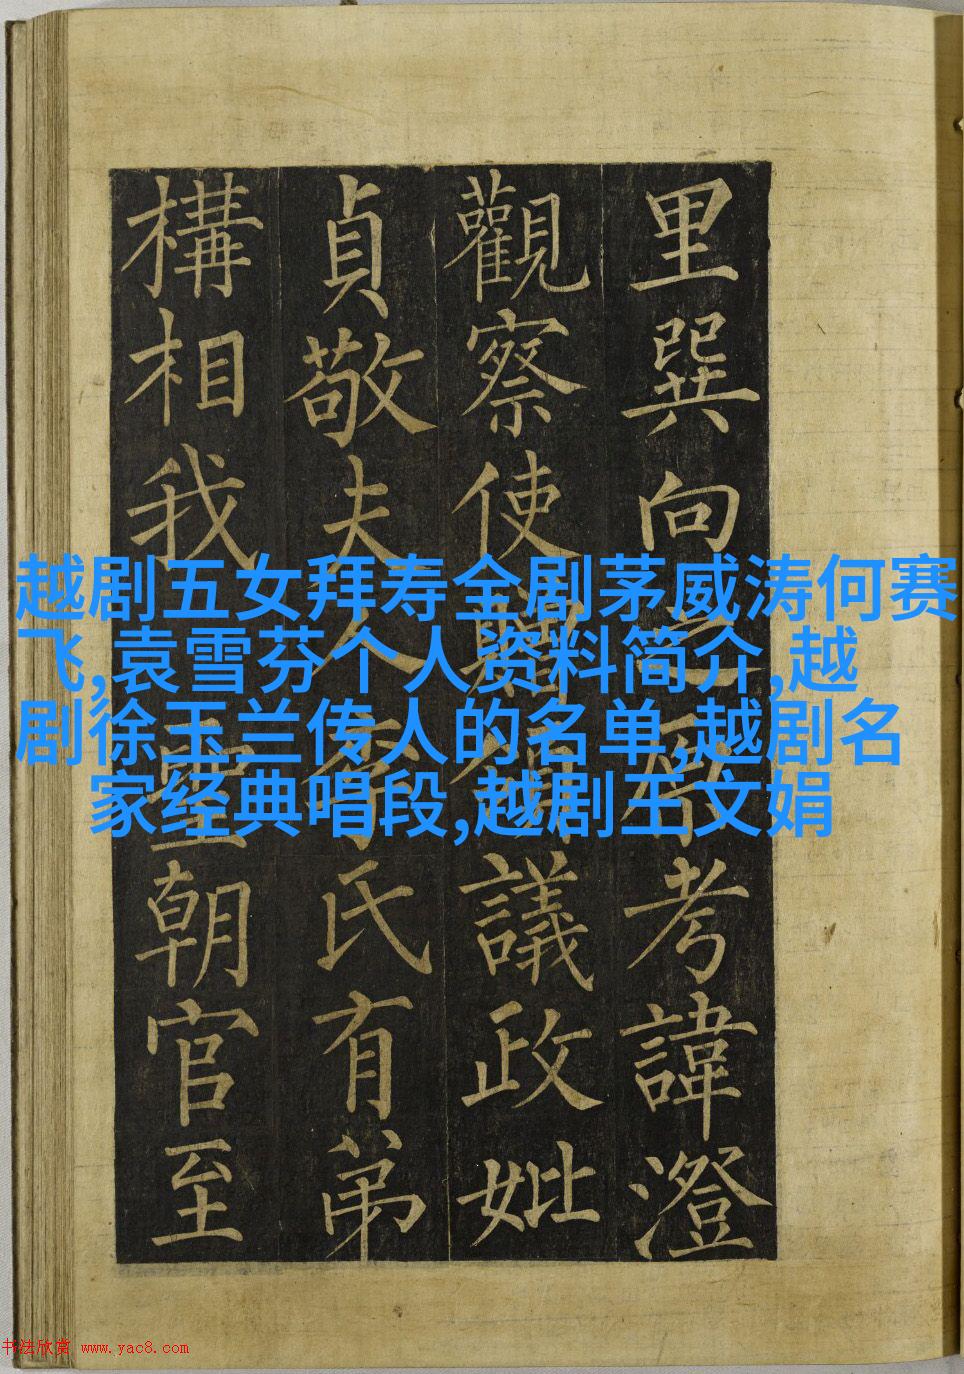 里巽向考諱澄
觀察使議政妣
貞敬夫人氏有弟
構相我朝官至
越剧五女拜寿全剧茅威涛何赛
飞,袁雪芬个人资料简介,越
剧徐玉兰传人的名单,越剧名
家经典唱段,越剧王文娟
书法欣赏 www.yac8.com